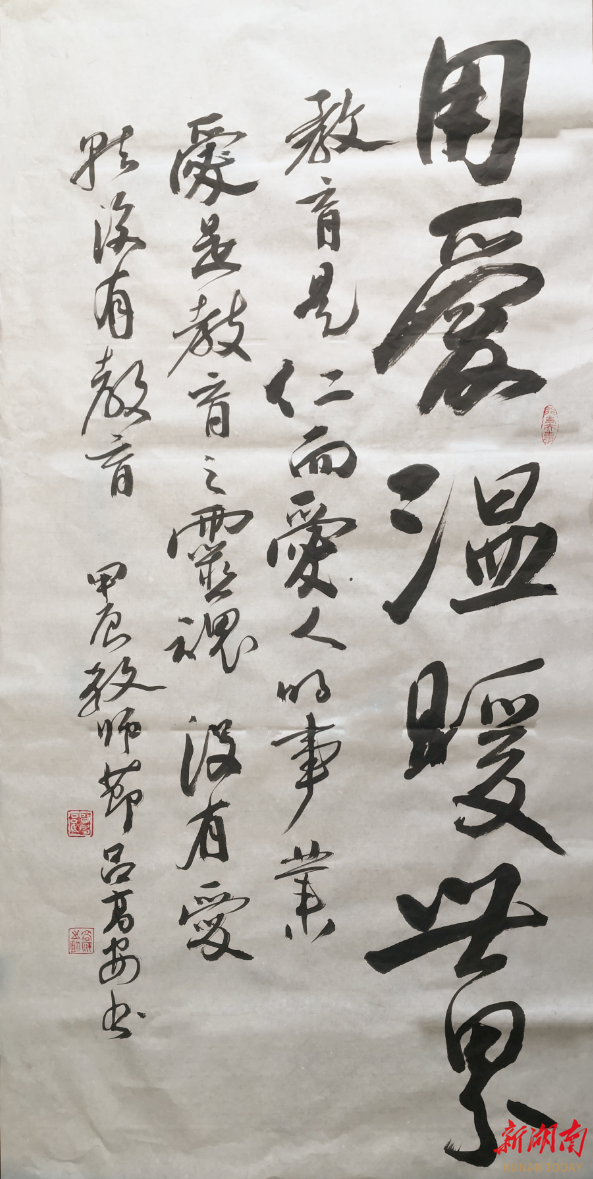 用愛温暖世界
教育是仁而愛人的事業
愛是教育之靈魂 没有愛
就没有教育 甲辰教師節吕高安书
新湖南